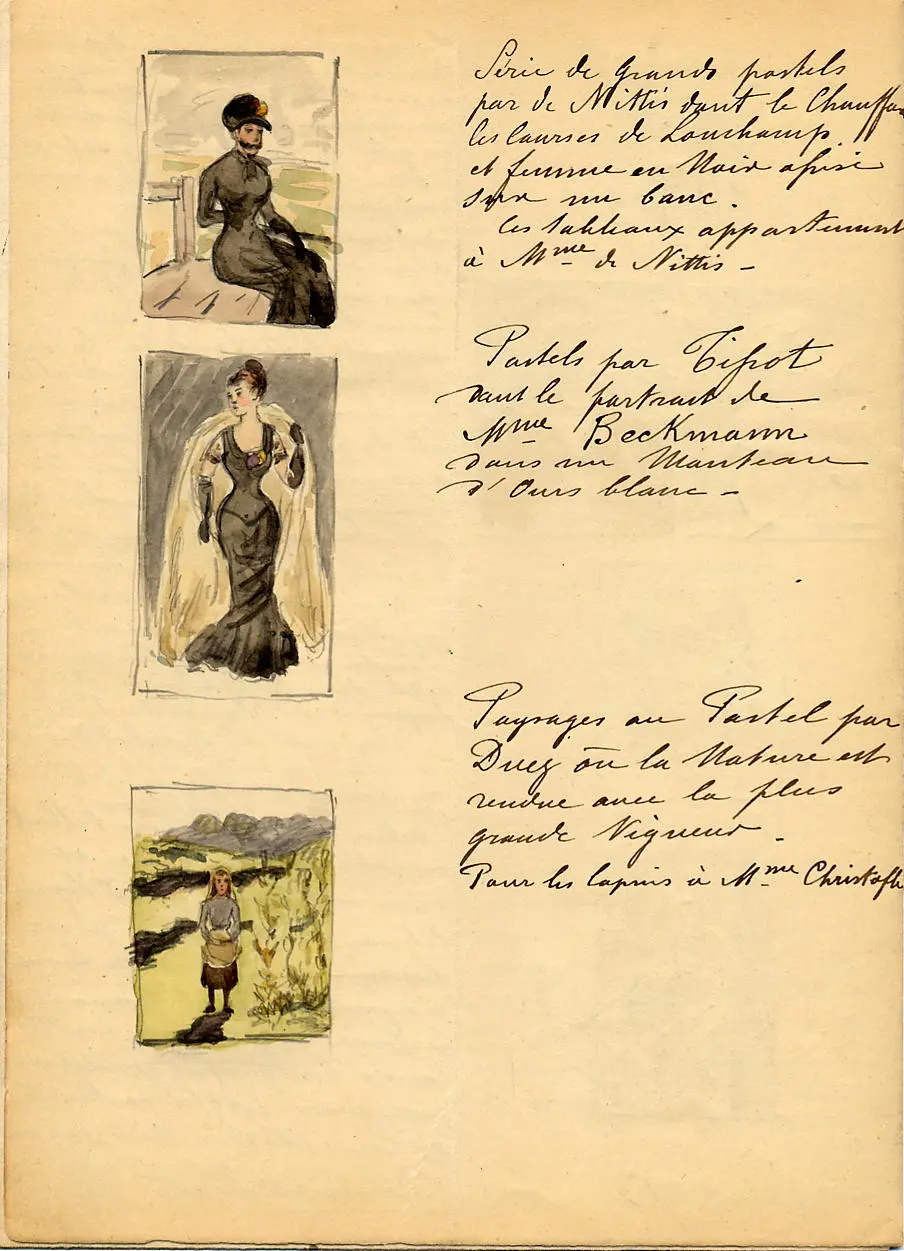 Série de grands pastels
par de Nittis dont le Chauffa
les Courses de Lonchamp
et femme en Noir assise
sur un banc.
Ces tableaux appartiennent
à Mme de Nittis -
Pastels par Tissot
dont le portrait de
Mme Beckmann
dans un Manteau
d'Ours blanc -
Paysages au Pastel par
Duez où la Nature est
rendue avec la plus
grande Vigueur -
Pour les lapins à Mme Christofle